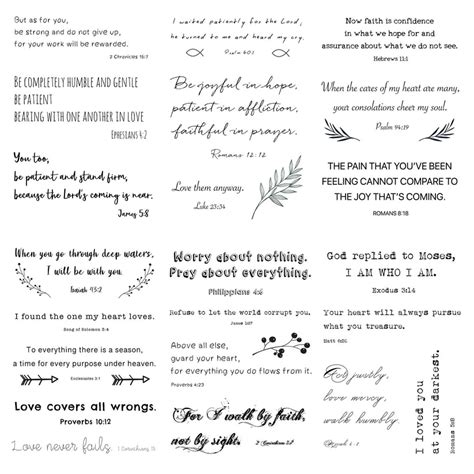 But as for you,
be strong and do not give up,
for your work will be rewarded.
2 Chronicles 15:7
I waited patiently for the Lord,
he turned to me and heard my cry.
Psalm 40:1
Now faith is confidence
in what we hope for and
assurance about what we do not see.
Hebrews 11:1
Be completely humble and gentle
be patient
bearing with one another in love
Ephesians 4:2
Be joyful in hope,
patient in affliction,
faithful in prayer.
Romans 12:12
When the cares of my heart are many,
your consolations cheer my soul.
Psalm 94:19
You too,
be patient and stand firm,
because the Lord's coming is near.
James 5:8
Love them anyway.
Luke 23:34
THE PAIN THAT YOU'VE BEEN
FEELING CANNOT COMPARE TO
THE JOY THAT'S COMING.
ROMANS 8:18
When you go through deep waters,
I will be with you.
Isaiah 43:2
Worry about nothing.
Pray about everything.
Philippians 4:6
God replied to Moses,
I AM WHO I AM.
Exodus 3:14
I found the one my heart loves.
Song of Solomon 3:4
Refuse to let the world corrupt you.
James 1:27
Your heart will always pursue
what you treasure.
Matt 6:21
To everything there is a season,
a time for every purpose under heaven.
Ecclesiastes 3:1
Above all else,
guard your heart,
for everything you do flows from it.
Proverbs 4:23
Do justly,
love mercy,
walk humbly.
I loved you
at your darkest.
Romans 5:8
Love covers all wrongs.
Proverbs 10:12
For I walk by faith,
not by sight.
2 Corinthians 5:7
Love never fails.